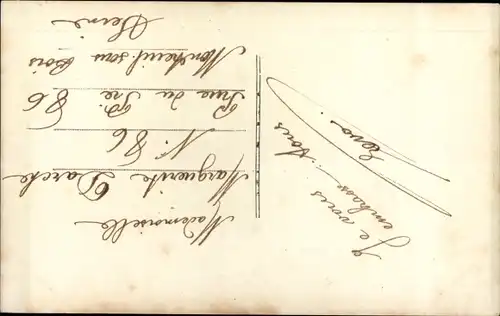 Mademoiselle
Marguerite Darche
N. 86
Rue du Pré 86
Montreuil sous Bois
Seine
Je vous
embrasse. Vous